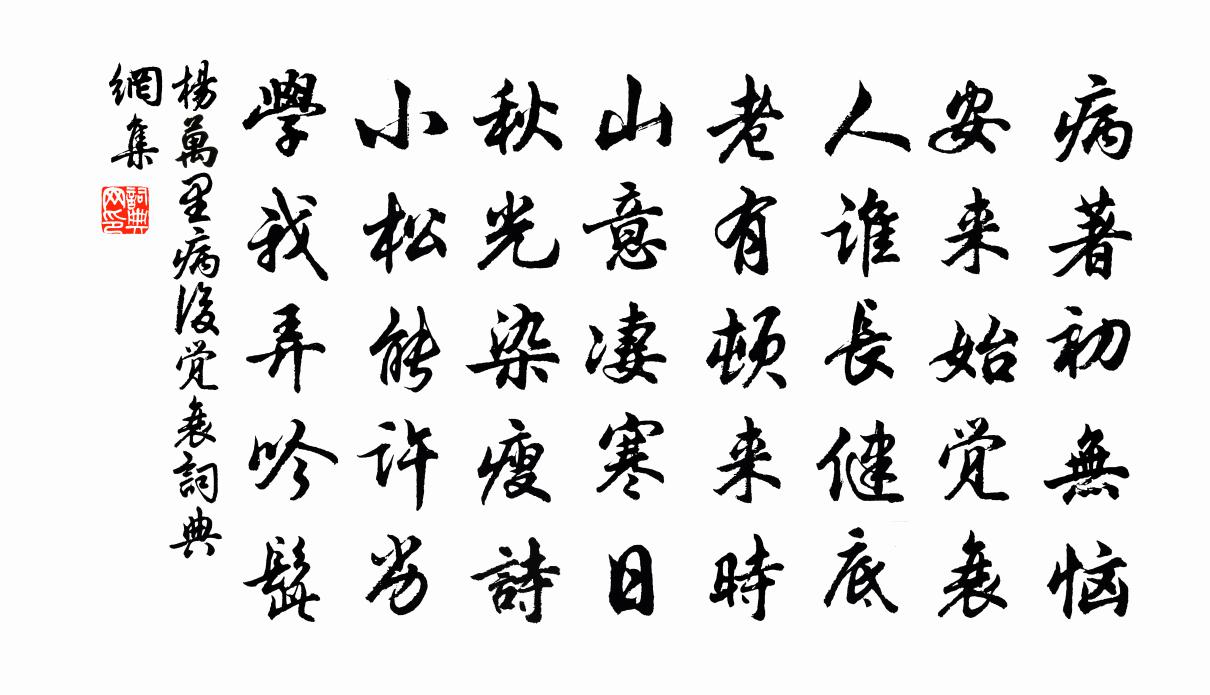 病著初無恼
安来始觉衰
人谁長健底
老有頓来時
山意凄寒日
秋光染瘦詩
小松能许劣
學我弄吟髭
楊萬里病後觉衰詞典
網集
詞典
网印